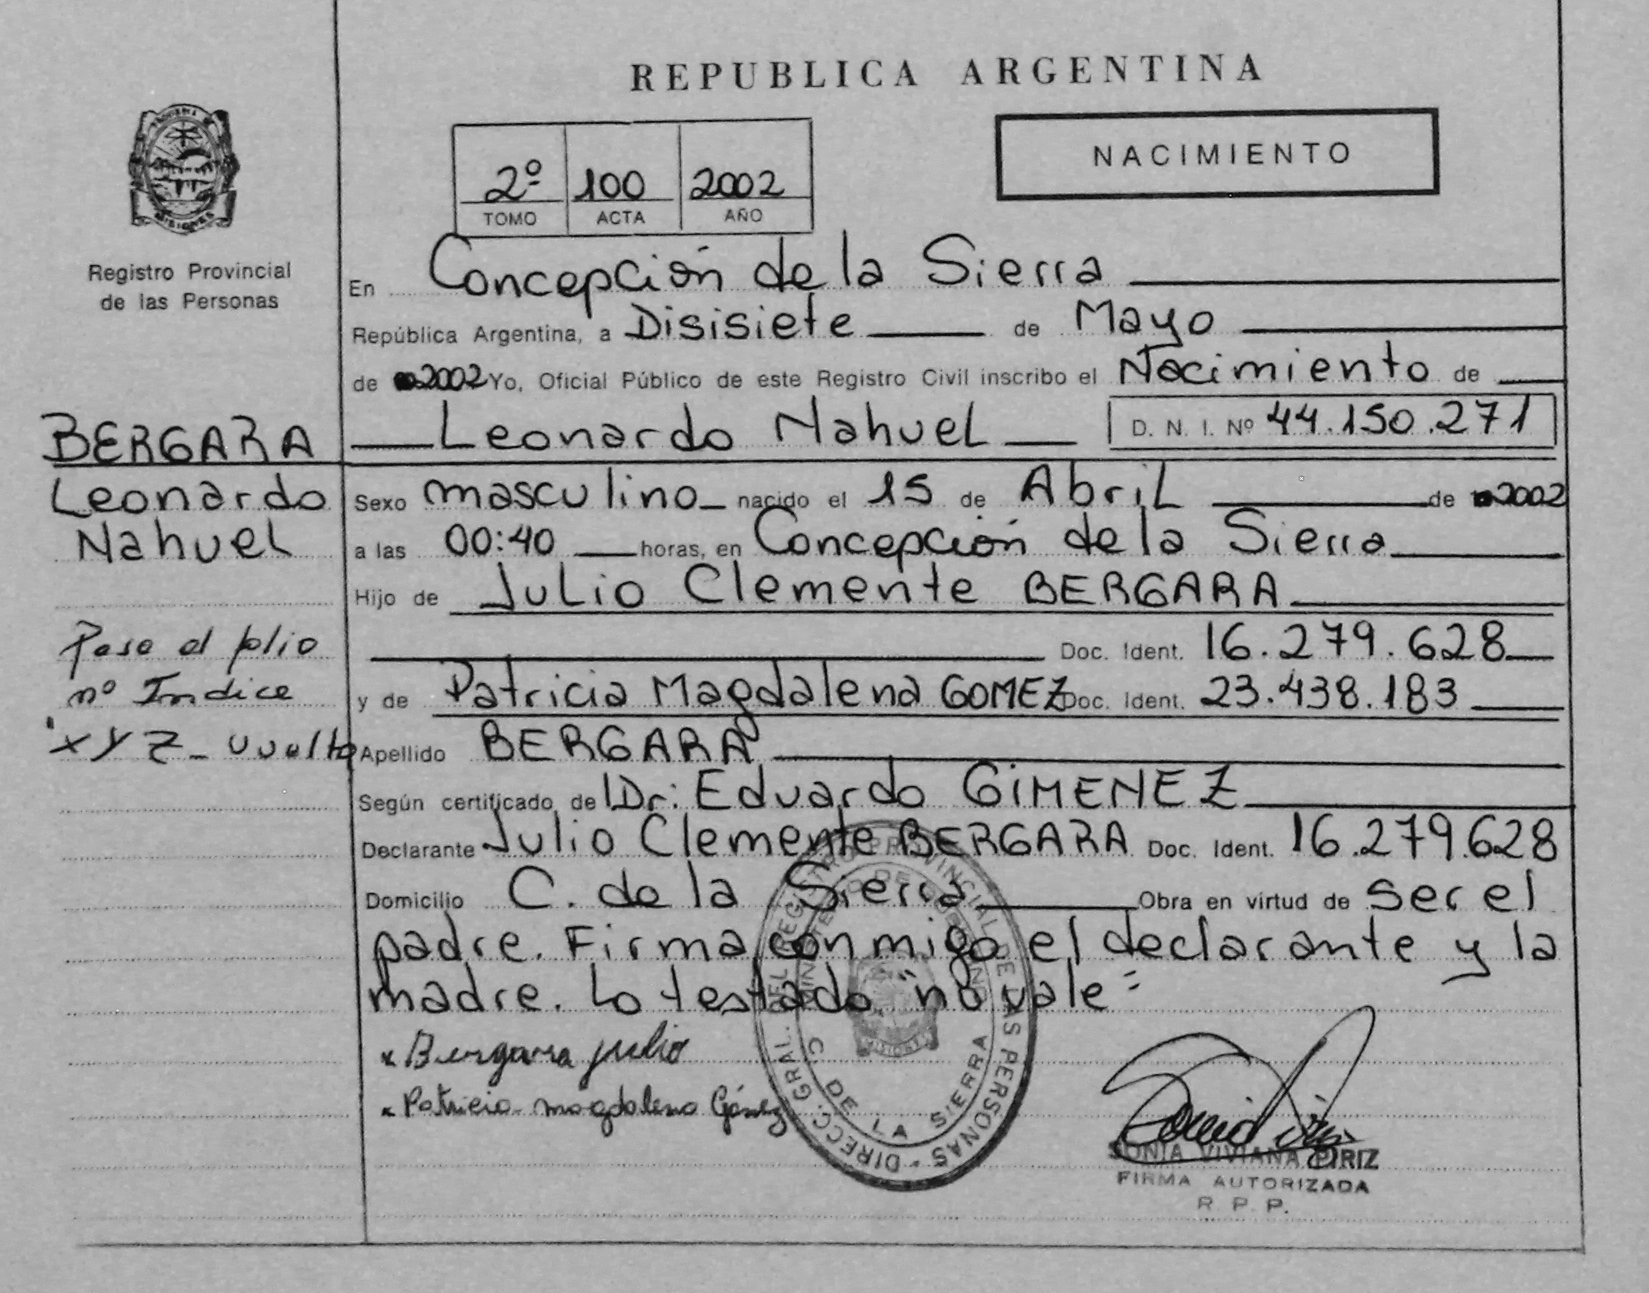 REPUBLICA ARGENTINA
NACIMIENTO
2º 100 2002
TOMO ACTA AÑO
Registro Provincial
de las Personas
En Concepción de la Sierra
República Argentina, a Disisiete de Mayo
de 2002 Yo, Oficial Público de este Registro Civil inscribo el Nacimiento de
Leonardo Nahuel D. N. I. Nº 44.150.271
BERGARA
Leonardo
Nahuel
Pase al folio
nº Indice
"XYZ - vuelto
Sexo masculino nacido el 15 de Abril de 2002
a las 00:40 horas, en Concepción de la Sierra
Hijo de Julio Clemente BERGARA
Doc. Ident. 16.279.628
y de Patricia Magdalena GOMEZ Doc. Ident. 23.438.183
Apellido BERGARA
Según certificado de Dr: Eduardo GIMENEZ
Declarante Julio Clemente BERGARA Doc. Ident. 16.279.628
Domicilio C. de la Sierra Obra en virtud de ser el
padre. Firma con migo el declarante y la
madre. Lo testado "no vale"
x Bergara julio
x Patricia magdalena Gómez
DIRECC. GRAL. DEL REGISTRO PROVINCIAL DE LAS PERSONAS
C. DE LA SIERRA
SONIA VIVIANA PIRIZ
FIRMA AUTORIZADA
R. P. P.